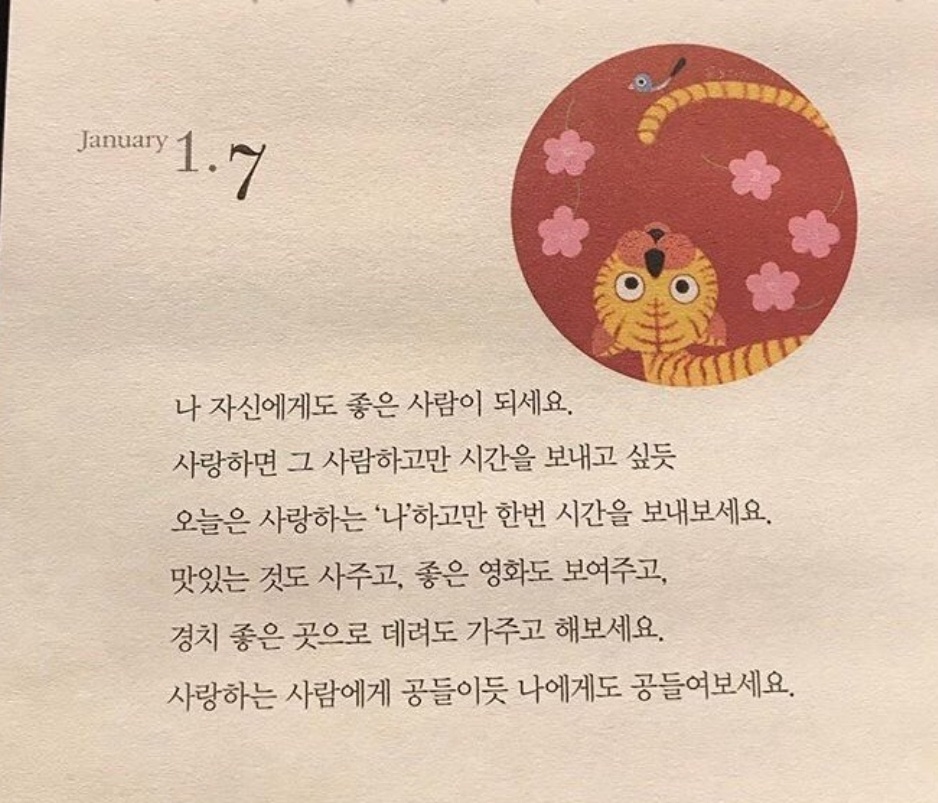 January 1.7
나 자신에게도 좋은 사람이 되세요.
사랑하면 그 사람하고만 시간을 보내고 싶듯
오늘은 사랑하는 ‘나’하고만 한번 시간을 보내보세요.
맛있는 것도 사주고, 좋은 영화도 보여주고,
경치 좋은 곳으로 데려도 가주고 해보세요.
사랑하는 사람에게 공들이듯 나에게도 공들여보세요.